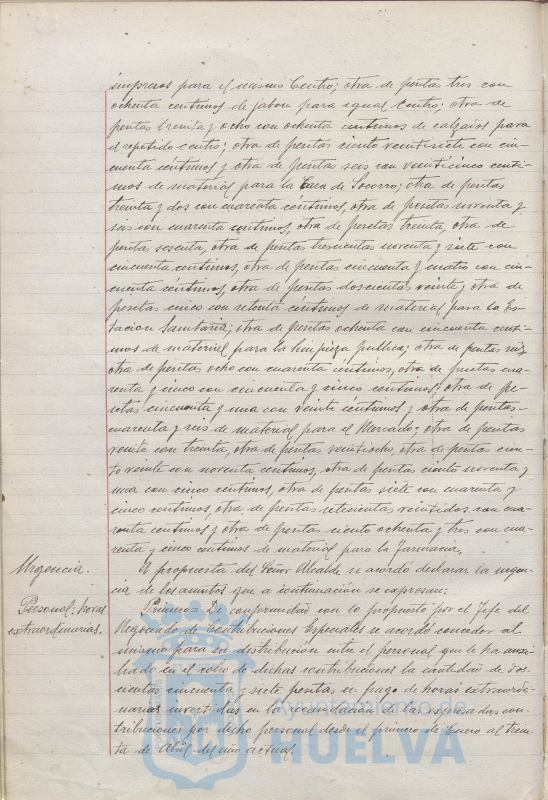 impresos para el mismo Centro; otra de pesetas tres con
ochenta centimos de jabon para igual Centro; otra de
pesetas treinta y ocho con ochenta centimos de calzados para
el repetido centro; otra de pesetas ciento veintisiete con cin-
cuenta céntimos y otra de pesetas seis con veinticinco centi-
mos de material para la Casa de Socorro; otra de pesetas
treinta y dos con cuarenta céntimos, otra de pesetas noventa y
seis con cuarenta centimos, otra de pesetas treinta, otra de
pesetas sesenta, otra de pesetas trescientas noventa y siete con
cincuenta centimos, otra de pesetas cincuenta y cuatro con cin-
cuenta céntimos, otra de pesetas doscientas veinte y otra de
pesetas cinco con setenta céntimos de material para la Es-
tacion Sanitaria; otra de pesetas ochenta con cincuenta centi-
mos de material para la limpieza publica; otra de pesetas seis,
otra de pesetas ocho con cuarenta céntimos, otra de pesetas cua-
renta y cinco con cincuenta y cinco centimos, otra de pe-
setas cincuenta y una con veinte céntimos y otra de pesetas
cuarenta y seis de material para el Mercado; otra de pesetas
veinte con treinta, otra de pesetas veintiocho, otra de pesetas cien-
to veinte con noventa centimos, otra de pesetas ciento noventa y
una con cinco centimos, otra de pesetas siete con cuarenta y
cinco centimos, otra de pesetas setecientas veintidos con cua-
renta centimos y otra de pesetas ciento ochenta y tres con cua-
renta y cinco centimos de material para la farmacia.
Urgencia.
A propuesta del Señor Alcalde se acordó declarar la urgen-
cia de los asuntos que a continuación se expresan:
Personal: horas
extraordinarias.
Primero = De conformidad con lo propuesto por el Jefe del
Negociado de Contribuciones Especiales se acordó conceder al
mismo para su distribucion entre el personal que le ha auxi-
liado en el cobro de dichas contribuciones la cantidad de dos-
cientas cincuenta y siete pesetas en pago de horas extraordi-
narias invertidas en la recaudacion de las expresadas con-
tribuciones por dicho personal desde el primero de Enero al trein-
ta de Abril del año actual.
Ayuntamiento de
HUELVA